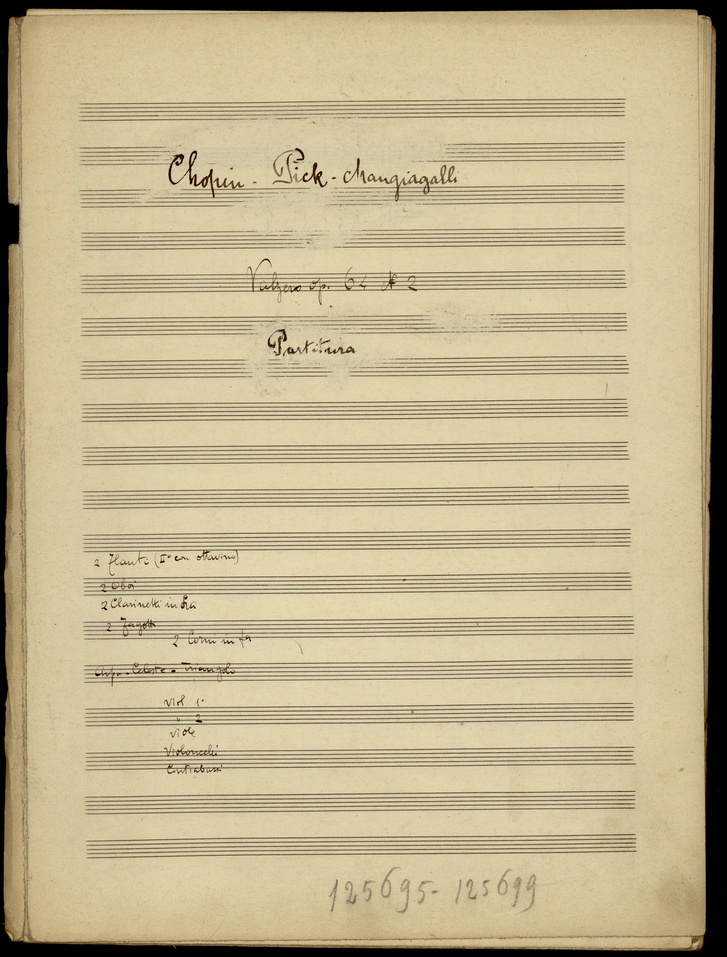 Chopin - Pick - Mangiagalli
Valzero op. 64 N 2
Partitura
2 Flauti (II° con ottavino)
2 Oboi
2 Clarinetti in La
2 Fagotti
2 Corni in fa
Arpa - Celeste - Triangolo
Viol 1.
" 2
Viole
Violoncelli
Contrabassi
125695 - 125699